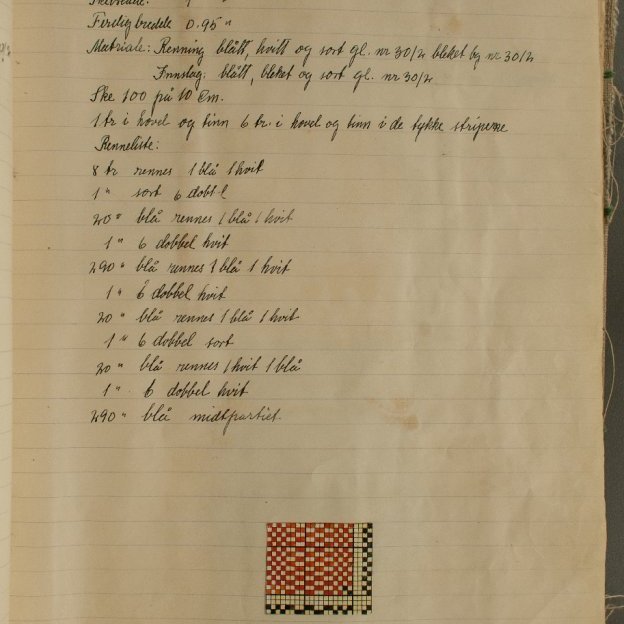 Ferdig bredde 0.95 "
Matriale: Renning blått, hvitt og sort gl. nr 30/2 bleket bg nr 30/2
Innslag: blått, bleket og sort gl. nr 30/2
Ske 100 på 10 Cm.
1 tr i hovel og tinn 6 tr. i hovel og tinn i de tykke striperne
Renneliste:
8 tr rennes 1 blå 1 hvit
1 " sort 6 dobbl
20 " blå rennes 1 blå 1 hvit
1 " 6 dobbel hvit
290 " blå rennes 1 blå 1 hvit
1 " 6 dobbel hvit
20 " blå rennes 1 blå 1 hvit
1 " 6 dobbel sort
20 " blå rennes 1 hvit 1 blå
1 " 6 dobbel hvit
290 " blå midtpartiet.